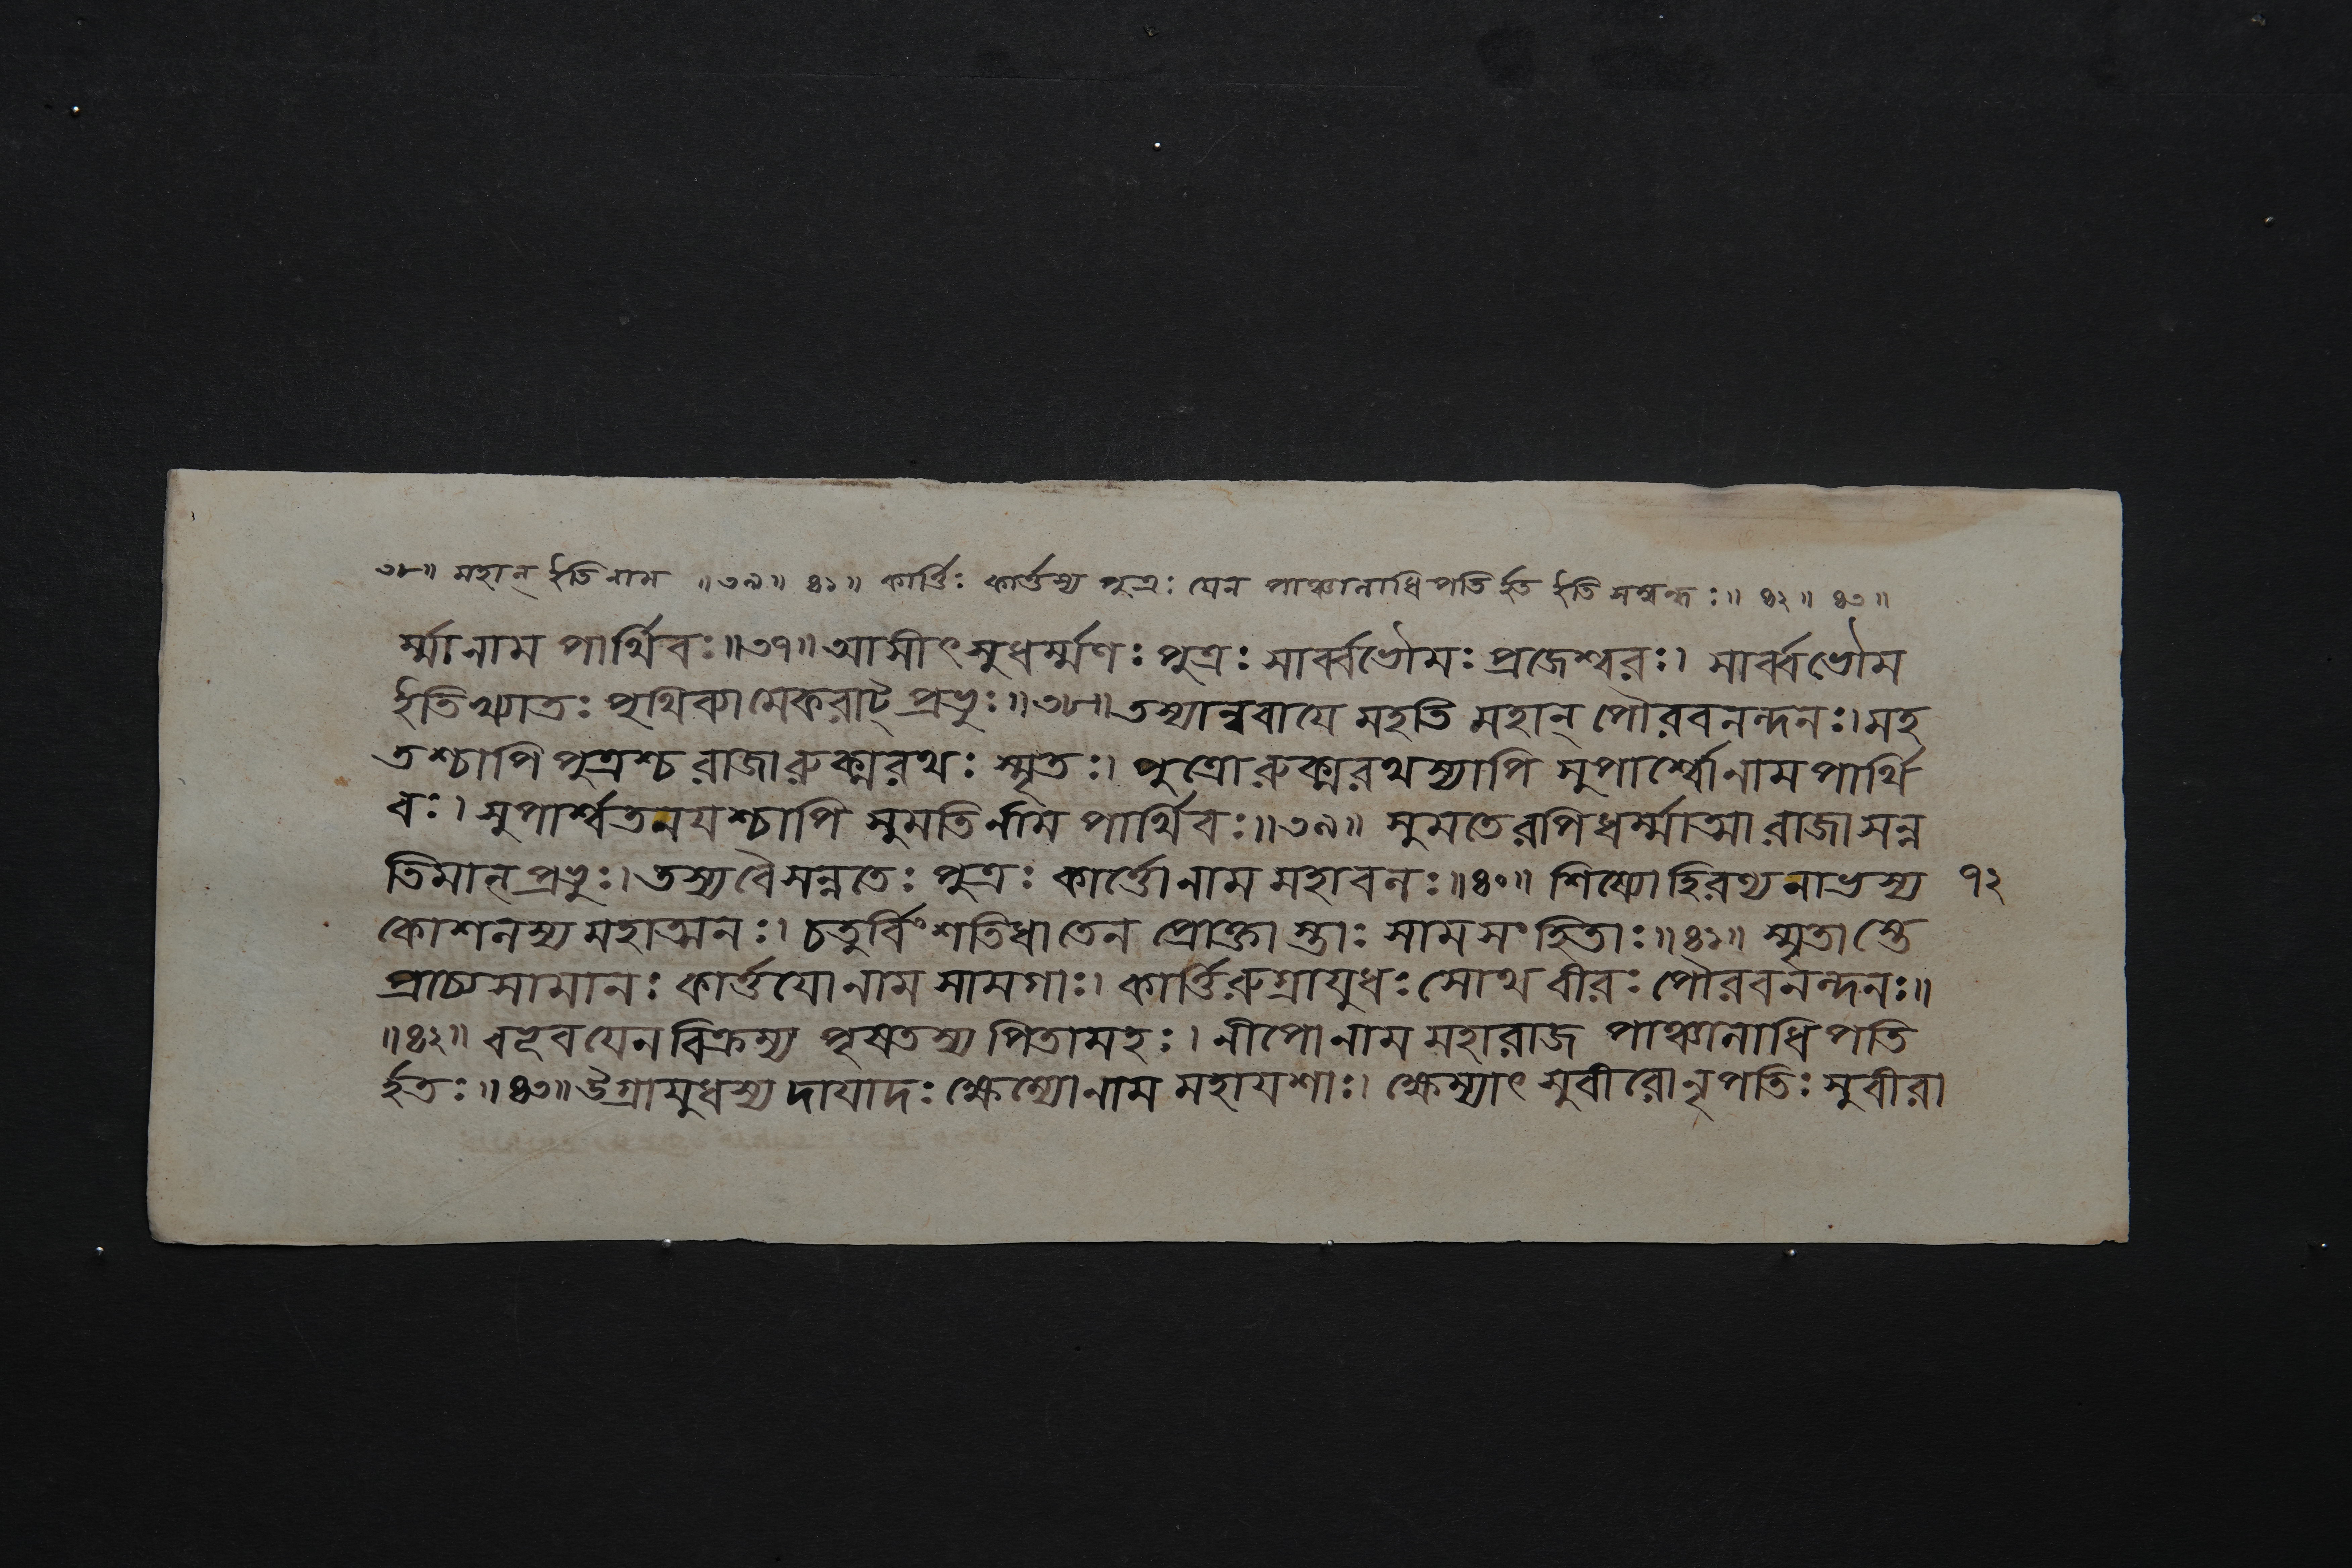 ৩৮॥ মহান্ ইতি নাম ॥৩৯॥ ৪১॥ কার্ত্তিঃ কার্ত্তস্য পুত্রঃ যেন পাঞ্চালাধিপতির্হত ইতি সম্বন্ধঃ॥ ৪২॥ ৪৩॥
র্ম্মানাম পার্থিবঃ॥৩৭॥ আসীৎ সুধর্ম্মণঃ পুত্রঃ সার্ব্বভৌমঃ প্রজেশ্বরঃ। সার্ব্বভৌম
ইতিখ্যাতঃ পৃথিব্যামেকরাট্ প্রভুঃ॥৩৮॥ তস্যান্ববায়ে মহতি মহান্ পৌরবনন্দনঃ। মহ
তশ্চাপি পুত্রশ্চ রাজা রুক্মরথঃ স্মৃতঃ। পুত্রো রুক্মরথস্যাপি সুপার্শ্বোনাম পার্থি
বঃ। সুপার্শ্বতনয়শ্চাপি সুমতির্নাম পার্থিবঃ॥৩৯॥ সুমতেরপি ধর্ম্মাত্মা রাজা সন্ন
তিমান্ প্রভুঃ। তস্য বৈ সন্নতেঃ পুত্রঃ কার্ত্তোনাম মহাবলঃ॥৪০॥ শিষ্যো হিরণ্যনাভস্য ৭২
কোশলস্য মহাত্মনঃ। চতুর্বিংশতিধা তেন প্রোক্তা স্তাঃ সামসংহিতাঃ॥৪১॥ স্মৃতা স্তে
প্রাচ্যসামানঃ কার্ত্তয়োনাম সামগাঃ। কার্ত্তিরুগ্রায়ুধঃ সোথ বীরঃ পৌরবনন্দনঃ॥
॥৪২॥ বভূব যেন বিক্রম্য পৃষতস্য পিতামহঃ। নীপোনাম মহারাজ পাঞ্চালাধিপতি
র্হতঃ॥৪৩॥ উগ্রায়ুধস্য দায়াদঃ ক্ষেম্যোনাম মহাযশাঃ। ক্ষেম্যাৎ সুবীরো নৃপতিঃ সুবীরা